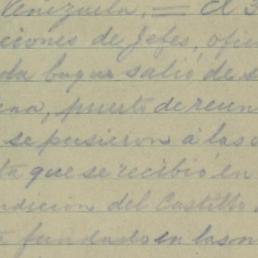 Venezuela, = El 3
ciones de Jefes, ofic
salió de
ena, puerto de reun
se pusieron á las o
ta que se recibió en
ndicion del Castillo
fundado en las